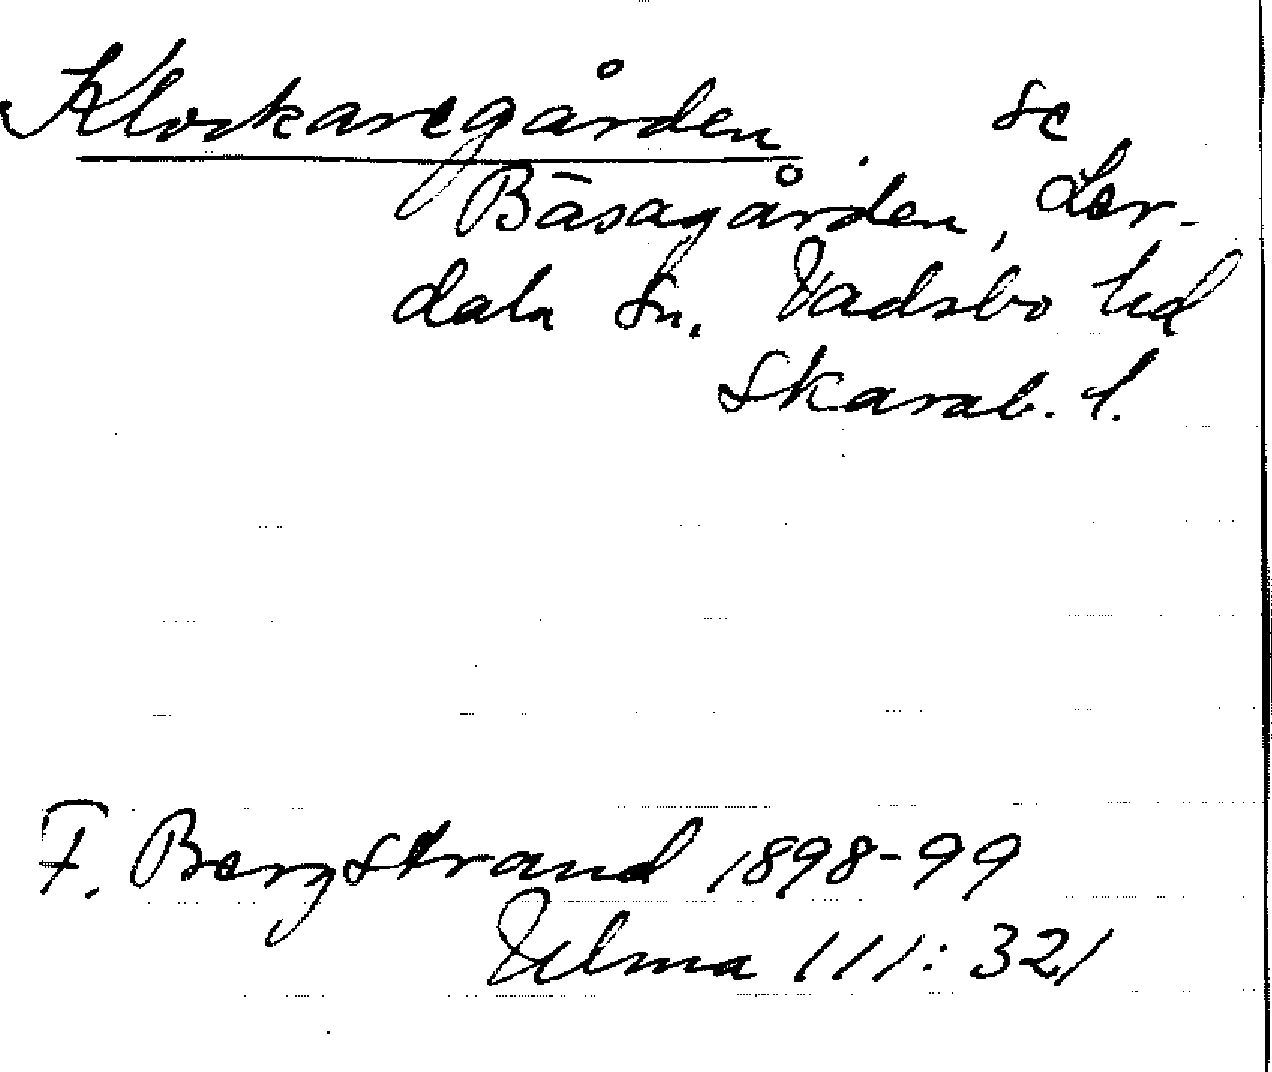 Klockaregården se
Bäsagården, Ler-
dala sn. Vadsbo hd
Skarab. l.
F. Bergstrand 1898-99
Ulma 111:321